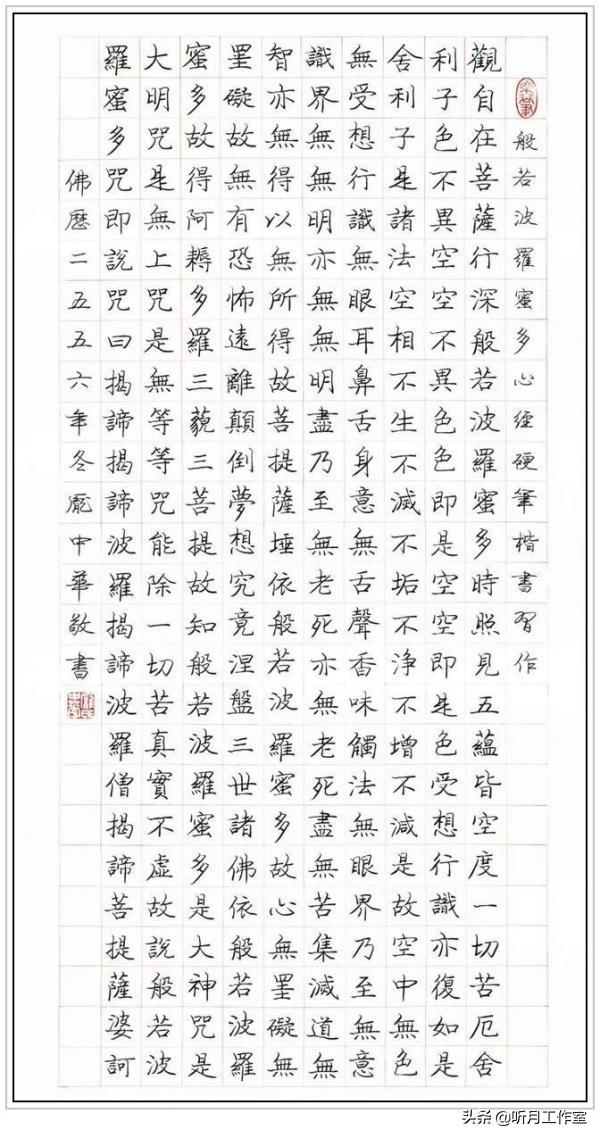 般若波羅蜜多心經硬筆楷書習作
觀自在菩薩行深般若波羅蜜多時照見五蘊皆空度一切苦厄舍
利子色不異空空不異色色即是空空即是色受想行識亦復如是
舍利子是諸法空相不生不滅不垢不淨不增不減是故空中無色
無受想行識無眼耳鼻舌身意無舌聲香味觸法無眼界乃至無意
識界無無明亦無無明盡乃至無老死亦無老死盡無苦集滅道無
智亦無得以無所得故菩提薩埵依般若波羅蜜多故心無罣礙無
罣礙故無有恐怖遠離顛倒夢想究竟涅盤三世諸佛依般若波羅
蜜多故得阿耨多羅三藐三菩提故知般若波羅蜜多是大神咒是
大明咒是無上咒是無等等咒能除一切苦真實不虛故說般若波
羅蜜多咒即說咒曰揭諦揭諦波羅揭諦波羅僧揭諦菩提薩婆訶
佛曆二五五六年冬龐中華敬書
头条 @听月工作室